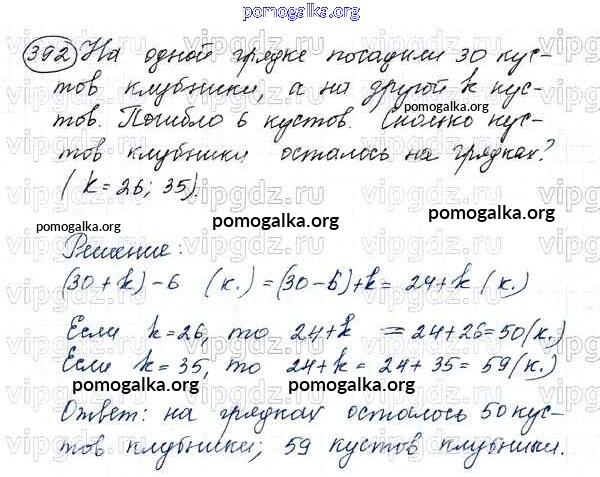 pomogalka.org
392 На одной грядке посадили 30 кус-
тов клубники, а на другой k кус-
pomogalka.org
тов. Погибло 6 кустов. Сколько кус-
тов клубники осталось на грядках?
pomogalka.org
(k = 26; 35).
pomogalka.org
pomogalka.org
Решение:
(30 + k) - 6 (к.) = (30 - 6) + k = 24 + k (к.)
Если k = 26, то 24 + k = 24 + 26 = 50 (к.)
Если k = 35, то 24 + k = 24 + 35 = 59 (к.)
pomogalka.org pomogalka.org
Ответ: на грядках осталось 50 кус-
тов клубники; 59 кустов клубники.
vipgdz.ru